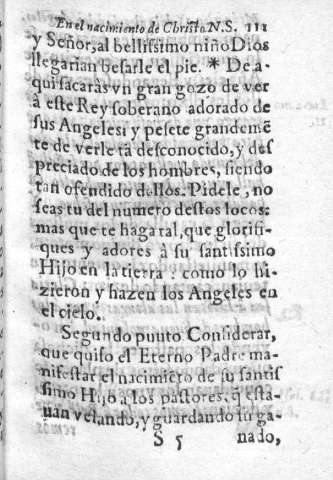 En el nacimiento de Christo N.S. 111
y Señor, al bellissimo niño Dios
llegarian besarle el pie. * De a-
qui sacaràs vn gran gozo de ver
à este Rey soberano adorado de
sus Angeles: y pesete grandemẽ
te de verle tã desconocido, y des
preciado de los hombres, siendo
tan ofendido dellos. Pidele, no
seas tu del numero destos locos:
mas que te haga tal, que glorifi-
ques y adores à su santissimo
Hijo en la tierra: como lo hi-
zieron y hazen los Angeles en
el cielo.
Segundo puuto Considerar,
que quiso el Eterno Padre ma-
nifestar el nacimiẽto de su santis
simo Hijo a los pastores, q̃ esta-
uan velando, y guardando su ga-
S 5 nado,